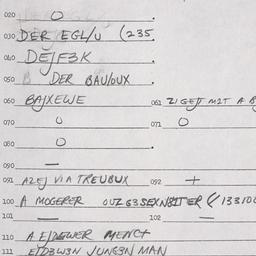 020 O
030 DER EGL/U (235
040 DEJF3K
050 B DER BAU/OUX
060 BAJXEWE 061 ZIGEJT M2T A B
070 O 071 O
080 O
090 —
091 AZEJ VIA TREUBUX 092 +
100 A MOGERER OUZ G3SEXN8IT ER (/ 13310
101 — 102 —
110 A MENCT
111 JUNG3N MAN